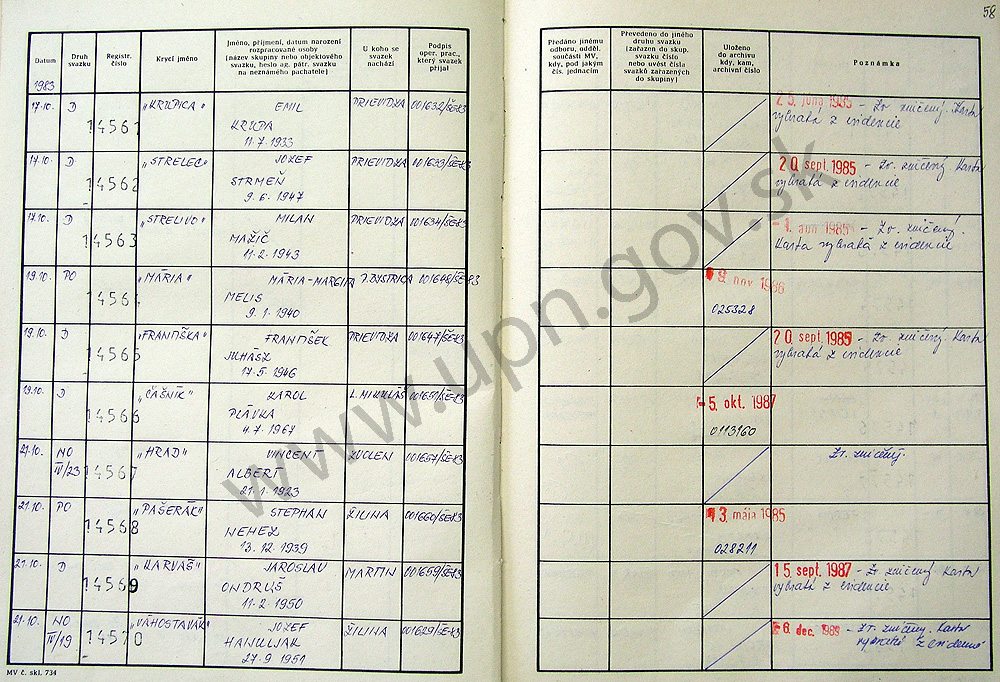 58
Datum
Druh svazku
Registr. číslo
Krycí jméno
Jméno, příjmení, datum narození
rozpracované osoby
(název skupiny nebo objektového
svazku, heslo ag. pátr. svazku
na neznámého pachatele)
U koho se
svazek
nachází
Podpis
oper. prac.,
který svazek
přijal
Předáno jinému
odboru, odděl.
součásti MV,
kdy, pod jakým
čís. jednacím
Převedeno do jiného
druhu svazku
(zařazen do skup.
svazku číslo
nebo uvést čísla
svazků zařazených
do skupiny)
Uloženo
do archivu
kdy, kam,
archivní číslo
Poznámka
1983
17.10. D 14561 "KRUPICA" EMIL PRIEVIDZA 001632/ŠE-K3
KRUPA
11.7.1933
25. júna 1985 - Zv. zničený. Karta
vybratá z evidencie
17.10. D 14562 "STRELEC" JOZEF PRIEVIDZA 001633/ŠE-K3
STRMEŇ
9.6.1947
20. sept. 1985 - Zv. zničený Karta
vybratá z evidencie
17.10. D 14563 "STRELIVO" MILAN PRIEVIDZA 001634/ŠE-K3
MAŽIČ
11.2.1943
1985 - Zv. zničený.
Karta vybratá z evidencie
19.10. PO 14564 "MÁRIA" MÁRIA-MARGITA P. BYSTRICA 001646/ŠE-K3
MELIS
9.1.1940
9. nov 1986
025328
19.10. D 14565 "FRANTIŠKA" FRANTIŠEK PRIEVIDZA 001647/ŠE-K3
JUHÁSZ
17.5.1946
20. sept. 1985 - Zv. zničený. Karta
vybratá z evidencie
19.10. D 14566 "ČAŠNÍK" KAROL L. MIKULÁŠ 001651/ŠE-K3
PLÁVKA
4.7.1967
-5. okt. 1987
0113160
21.10. NO IV/23 14567 "HRAD" VINCENT ZVOLEN 001657/ŠE-K3
ALBERT
21.1.1923
Zv. zničený.
21.10. PO 14568 "PAŠERÁK" STEPHAN ŽILINA 001660/ŠE-K3
NEMEZ
13.12.1939
13. mája 1985
028211
21.10. D 14569 "KARVAŠ" JAROSLAV MARTIN 001659/ŠE-K3
ONDRUŠ
11.2.1950
15. sept. 1987 - Zv. zničený Karta
vybratá z evidencie
21.10. NO IV/19 14570 "VÁHOSTAVÁK" JOZEF ŽILINA 001629/ŠE-K3
HANULJAK
27.9.1951
6. dec. 1988 - Zv. zničený. Karta
vybratá z evidencie
MV č. skl. 734
www.upn.gov.sk